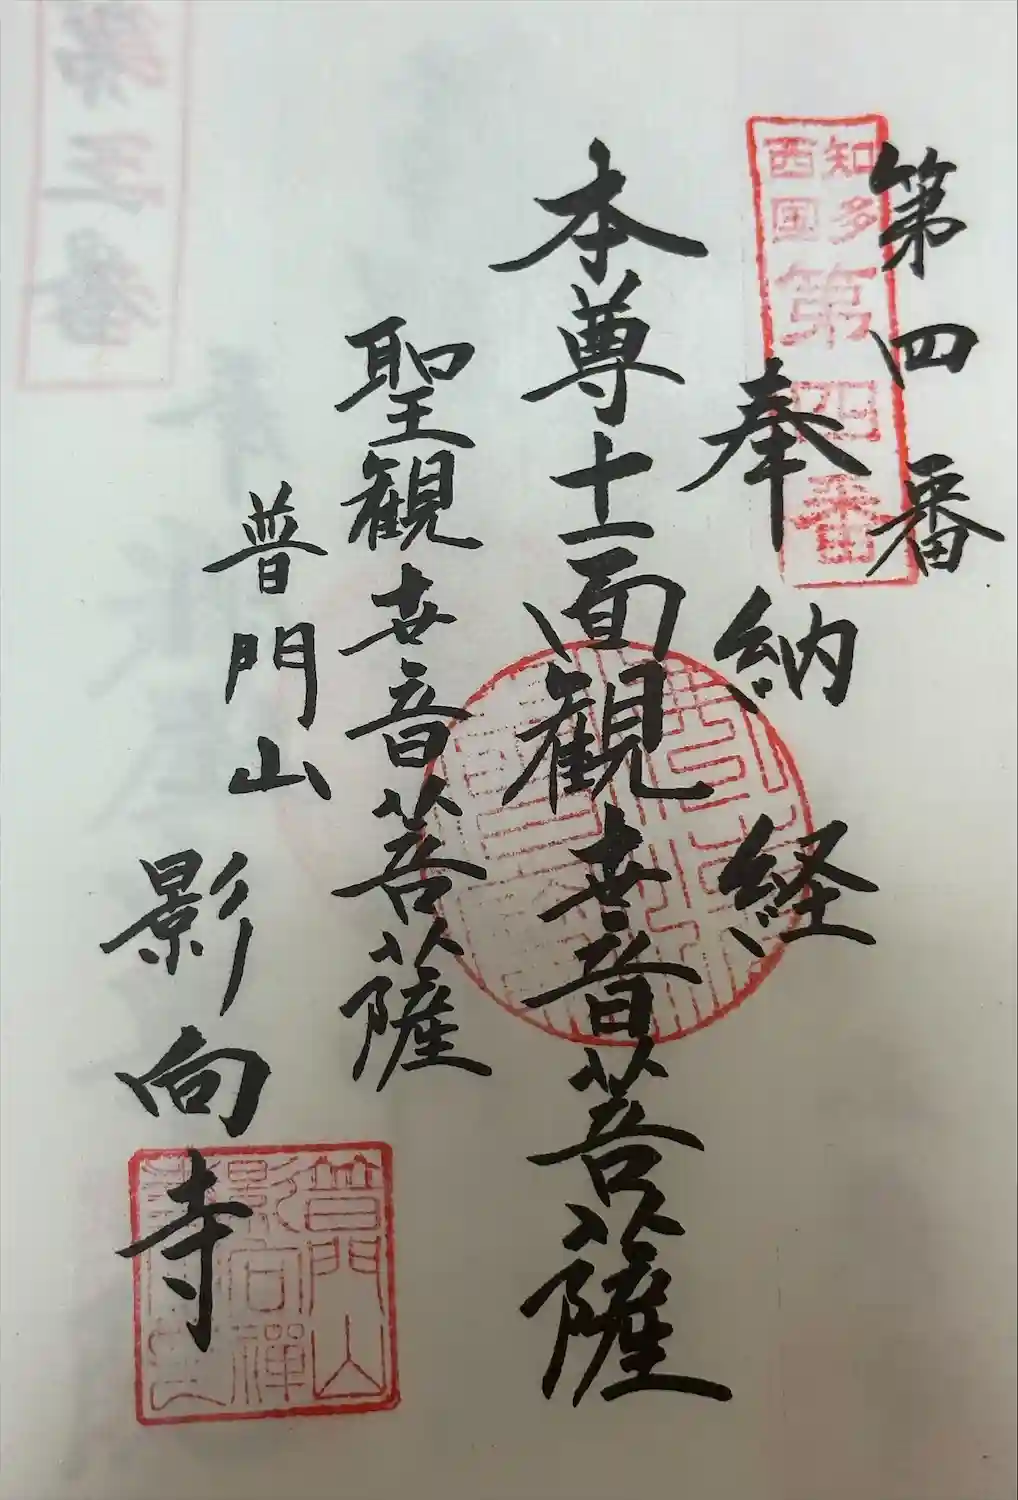 第四番
知多
西国
第四番
奉納経
本尊十一面観世音菩薩
聖観世音菩薩
普門山
影向寺
普門山
影向禅
第三番